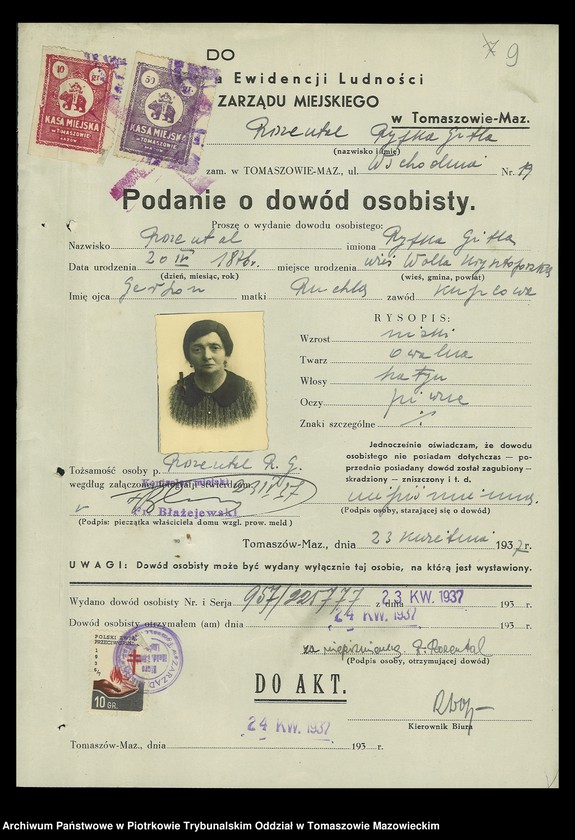 79
DO
a Ewidencji Ludności
ZARZĄDU MIEJSKIEGO
w Tomaszowie-Maz.
10 ZŁ
KASA MIEJSKA
W TOMASZOWIE
MAZOW.
50
KASA MIEJSKA
W TOMASZOWIE
Rozental Ryfka Gitla
(nazwisko i imię)
zam. w TOMASZOWIE-MAZ., ul. Wschodnia Nr. 19
Podanie o dowód osobisty.
Proszę o wydanie dowodu osobistego:
Nazwisko Rozental imiona Ryfka Gitla
Data urodzenia 20 IV 1876r. miejsce urodzenia wieś Wolka Krysztoporska
(dzień, miesiąc, rok) (wieś, gmina, powiat)
Imię ojca Gerszon matki Ruchla zawód kupcowa
RYSOPIS:
Wzrost niski
Twarz owalna
Włosy
Oczy piwne
Znaki szczególne ·/·
Jednocześnie oświadczam, że dowodu
osobistego nie posiadam dotychczas — po-
przednio posiadany dowód został zagubiony -
skradziony — zniszczony i t. d.
Tożsamość osoby p. Rozental R. G.
według załączonej stwierdzam
23 IV 37
Fr. Błażejewski
(Podpis: pieczątka właściciela domu wzgl. prow. meld)
niepiśmienna
(Podpis osoby, starającej się o dowód)
Tomaszów-Maz., dnia 23 kwietnia 1937r.
UWAGI: Dowód osobisty może być wydany wyłącznie tej osobie, na którą jest wystawiony.
Wydano dowód osobisty Nr. i Serja 957/225777 z dnia 23 KW. 1937 193 r.
Dowód osobisty otrzymałem (am) dnia 24 KW. 1937 193 r.
za niepiśmienną P. Rozental
(Podpis osoby, otrzymującej dowód)
POLSKI ZWIĄZ.
PRZECIWGRUŹL.
10 GR.
DO AKT.
Kierownik Biura
24 KW. 1937
Tomaszów-Maz., dnia 193 r.
Archiwum Państwowe w Piotrkowie Trybunalskim Oddział w Tomaszowie Mazowieckim